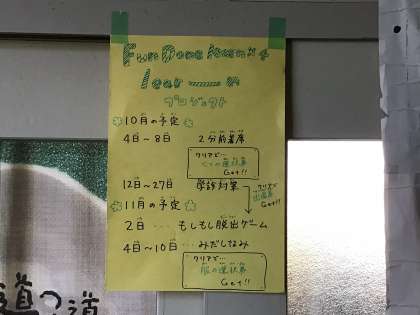 1 year
プロジェクト
☆10月の予定☆
4日～8日 2分前着席
クリアで…
Get!!
12日～27日 学診対策
クリアで
Get!!
☆11月の予定☆
2日 … もしもし脱出ゲーム
4日～10日 … みだしなみ
クリアで…
服の選択券
Get!!
道つ道